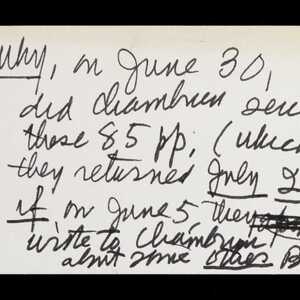 Why, on June 30,
did Chambrun
those 85 pp. (which
they returned July
if on June 5 they
write to Chambrun
about some other